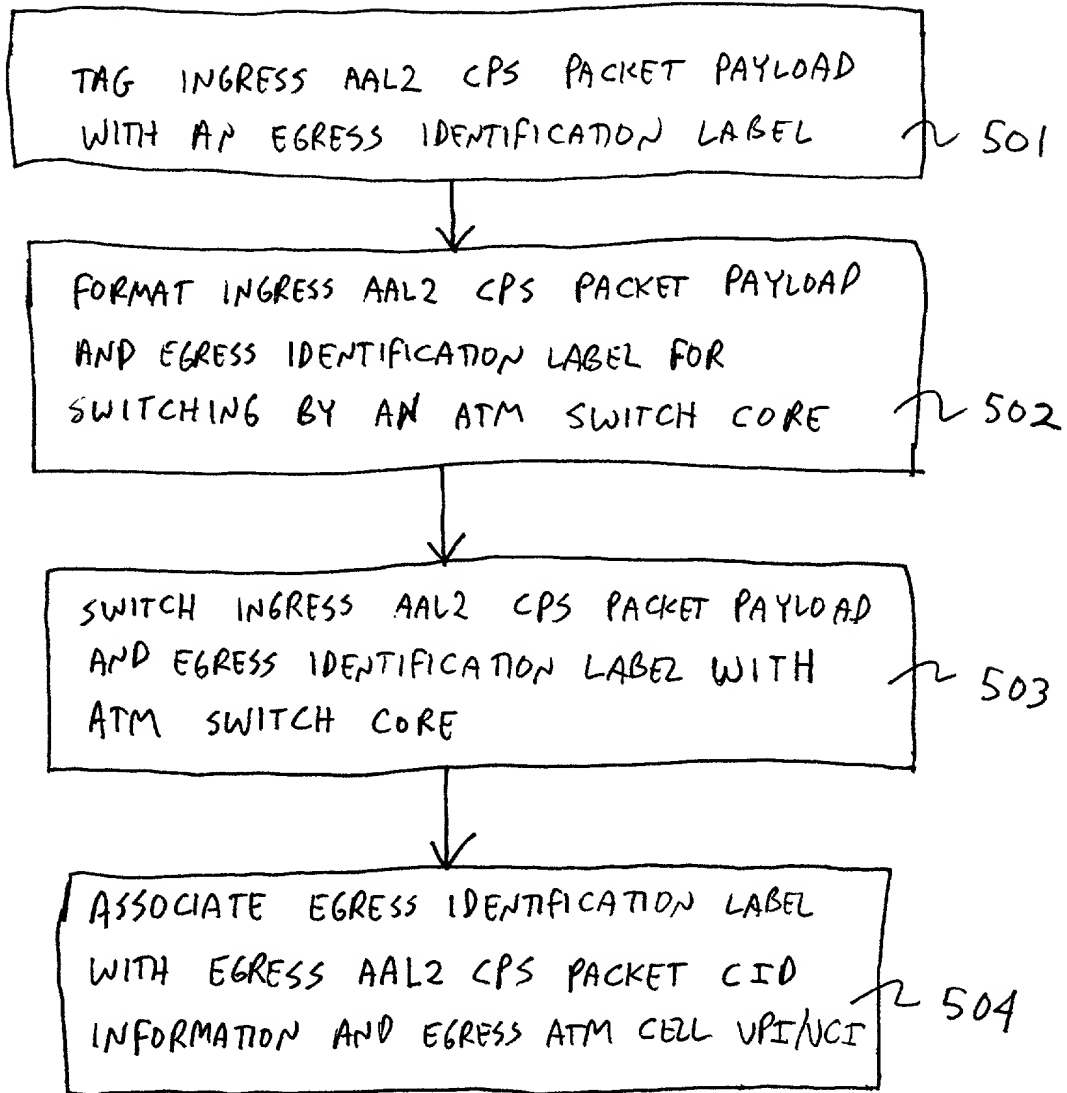 TAG INGRESS AAL2 CPS PACKET PAYLOAD
WITH AN EGRESS IDENTIFICATION LABEL
501
FORMAT INGRESS AAL2 CPS PACKET PAYLOAD
AND EGRESS IDENTIFICATION LABEL FOR
SWITCHING BY AN ATM SWITCH CORE
502
SWITCH INGRESS AAL2 CPS PACKET PAYLOAD
AND EGRESS IDENTIFICATION LABEL WITH
ATM SWITCH CORE
503
ASSOCIATE EGRESS IDENTIFICATION LABEL
WITH EGRESS AAL2 CPS PACKET CID
INFORMATION AND EGRESS ATM CELL VPI/VCI
504